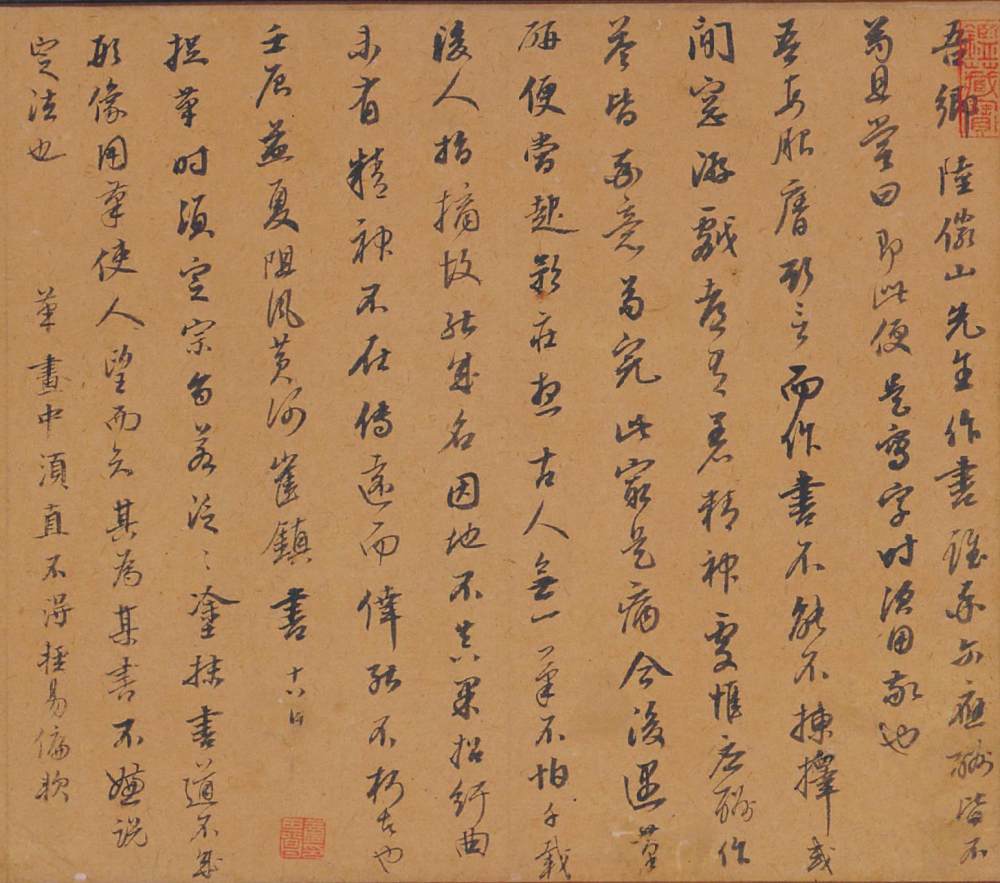 吾鄉陸儼山先生作書雖率爾應酬皆不
苟且嘗曰即此便是寫字時須用敬也
吾每服膺斯言而作書不能不揀擇或
閒窓游戲都有著精神處惟應酬作
答皆率意苟完此最是病今後遇筆
研便當起矜莊想古人無一筆不怕千載
後人指摘故能成名因地不真果招紆曲
未有精神不在傳遠而倖能不朽者也
壬辰孟夏阻風黃河崔鎮書 十八日
捉筆時須定宗旨若泛泛塗抹書道不成
形像用筆使人望而知其為某書不嫌說
定法也 筆畫中須直不得輕易偏軟